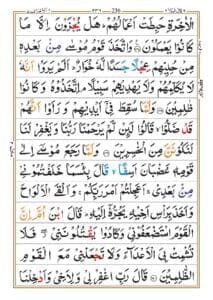 236
الْاٰخِرَةِ حَبِطَتْ اَعْمَالُهُمْ ؕ هَلْ يُجْزَوْنَ اِلَّا مَا
كَانُوْا يَعْمَلُوْنَ وَاتَّخَذَ قَوْمُ مُوْسٰى مِنْۢ بَعْدِهٖ
مِنْ حُلِيِّهِمْ عِجْلًا جَسَدًا لَّهٗ خُوَارٌ ؕ اَلَمْ يَرَوْا اَنَّهٗ
لَا يُكَلِّمُهُمْ وَلَا يَهْدِيْهِمْ سَبِيْلًا ۘ اِتَّخَذُوْهُ وَكَانُوْا
ظٰلِمِيْنَ وَلَمَّا سُقِطَ فِيْۤ اَيْدِيْهِمْ وَرَاَوْا اَنَّهُمْ
قَدْ ضَلُّوْا ۙ قَالُوْا لَئِنْ لَّمْ يَرْحَمْنَا رَبُّنَا وَيَغْفِرْ لَنَا
لَنَكُوْنَنَّ مِنَ الْخٰسِرِيْنَ وَلَمَّا رَجَعَ مُوْسٰۤى اِلٰى
قَوْمِهٖ غَضْبَانَ اَسِفًا ۙ قَالَ بِئْسَمَا خَلَفْتُمُوْنِيْ
مِنْۢ بَعْدِيْ ۚ اَعَجِلْتُمْ اَمْرَ رَبِّكُمْ ۚ وَاَلْقَى الْاَلْوَاحَ
وَاَخَذَ بِرَاْسِ اَخِيْهِ يَجُرُّهٗۤ اِلَيْهِ ؕ قَالَ ابْنَ اُمَّ اِنَّ
الْقَوْمَ اسْتَضْعَفُوْنِيْ وَكَادُوْا يَقْتُلُوْنَنِيْ ۖ فَلَا
تُشْمِتْ بِيَ الْاَعْدَآءَ وَلَا تَجْعَلْنِيْ مَعَ الْقَوْمِ
الظّٰلِمِيْنَ قَالَ رَبِّ اغْفِرْ لِيْ وَلِاَخِيْ وَاَدْخِلْنَا